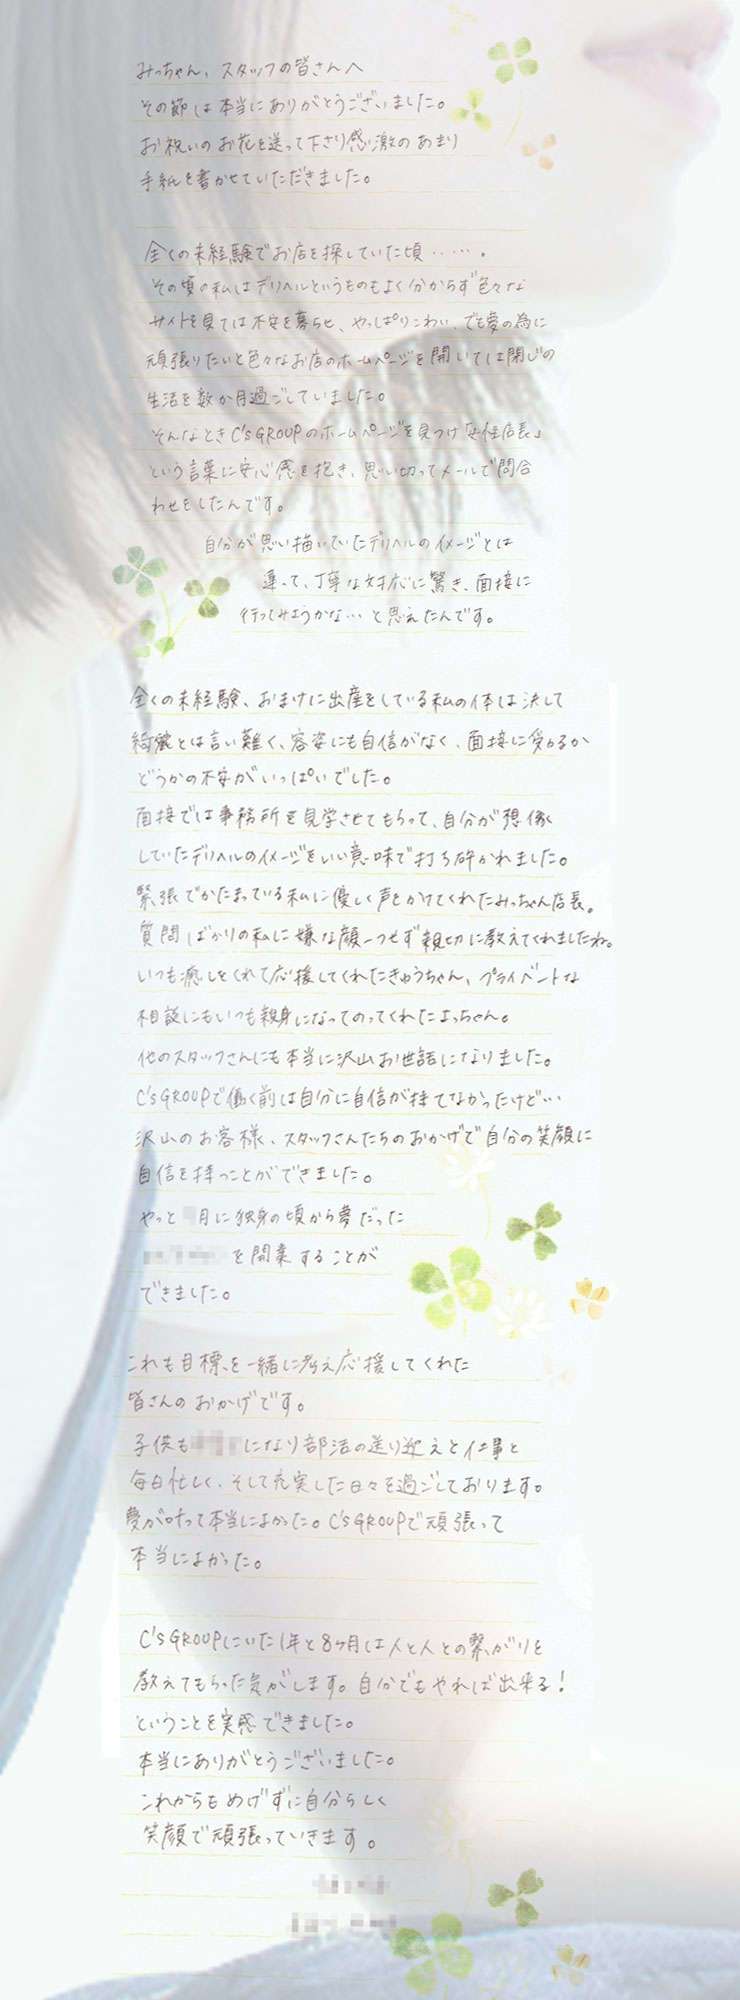 みっちゃん、スタッフの皆さんへ
その節は本当にありがとうございました。
お祝いのお花を送って下さり感激のあまり
手紙を書かせていただきました。
全くの未経験でお店を探していた頃……。
その頃の私はデリヘルというものもよく分からず色々な
サイトを見ては不安を募らせ、やっぱりこわい、でも夢の為に
頑張りたいと色々なお店のホームページを開いては閉じの
生活を数か月過ごしていました。
そんなときC'sGROUPのホームページを見つけ「女性店長」
という言葉に安心感を抱き、思い切ってメールで問合
わせをしたんです。
自分が思い描いていたデリヘルのイメージとは
違って、丁寧な対応に驚き、面接に
行ってみようかな…と思えたんです。
全くの未経験、おまけに出産をしている私の体は決して
綺麗とは言い難く、容姿にも自信がなく、面接に受かるか
どうかの不安がいっぱいでした。
面接では事務所を見学させてもらって、自分が想像
していたデリヘルのイメージをいい意味で打ち砕かれました。
緊張でかたまっている私に優しく声をかけてくれたみっちゃん店長。
質問ばかりの私に嫌な顔一つせず親切に教えてくれましたね。
いつも癒しをくれて応援してくれたきゅうちゃん、プライベントな
相談にもいつも親身になってのってくれたよっちゃん。
他のスタッフさんにも本当に沢山お世話になりました。
C'sGROUPで働く前は自分に自信が持てなかったけど…
沢山のお客様、スタッフさんたちのおかげで自分の笑顔に
自信を持つことができました。
やっと 月に独身の頃から夢だった
を開業することが
できました。
これも目標を一緒に考え応援してくれた
皆さんのおかげです。
子供も になり部活の送り迎えと仕事と
毎日忙しく、そして充実した日々を過ごしております。
夢が叶って本当によかった。C'sGROUPで頑張って
本当によかった。
C'sGROUPにいた1年と8ヶ月は人と人との繋がりを
教えてもらった気がします。自分でもやれば出来る!
ということを実感できました。
本当にありがとうございました。
これからもめげずに自分らしく
笑顔で頑張っていきます。